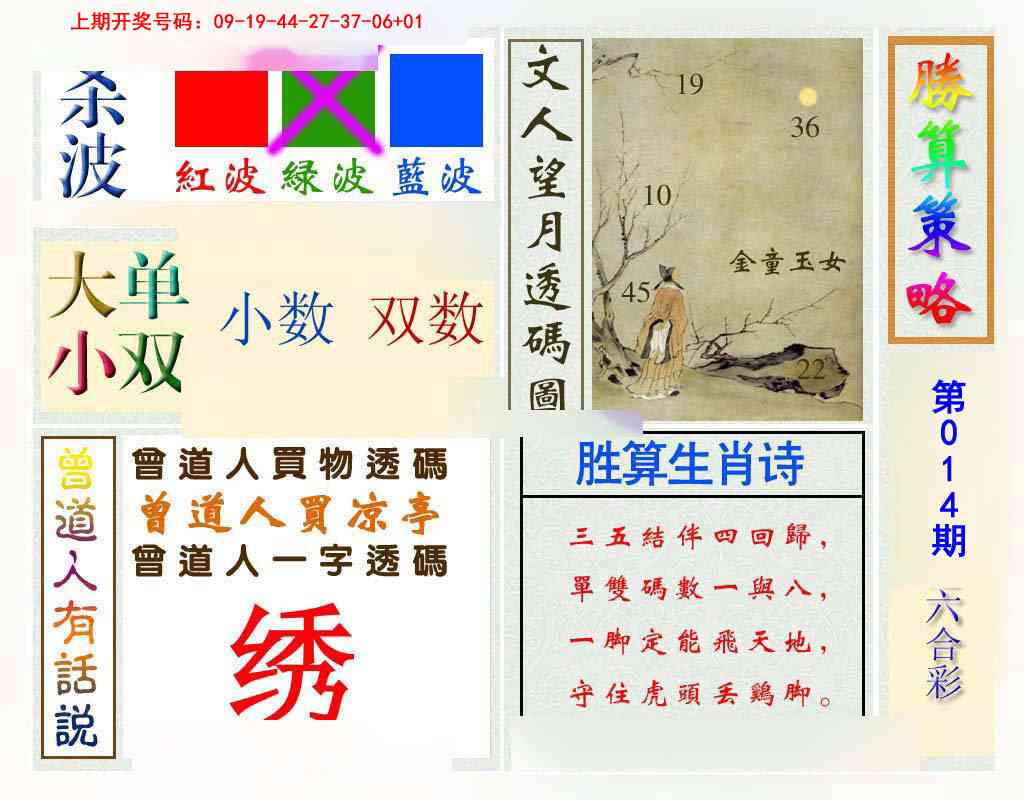 上期开奖号码：09-19-44-27-37-06+01
杀波
紅波
緑波
藍波
大单
小双
小数
双数
文人望月透碼圖
19
36
10
金童玉女
45
22
勝算策略
第014期
六合彩
曾道人有話説
曾道人買物透碼
曾道人買凉亭
曾道人一字透碼
绣
胜算生肖诗
三五結伴四回歸，
單雙碼數一與八，
一脚定能飛天地，
守住虎頭丢鷄脚。